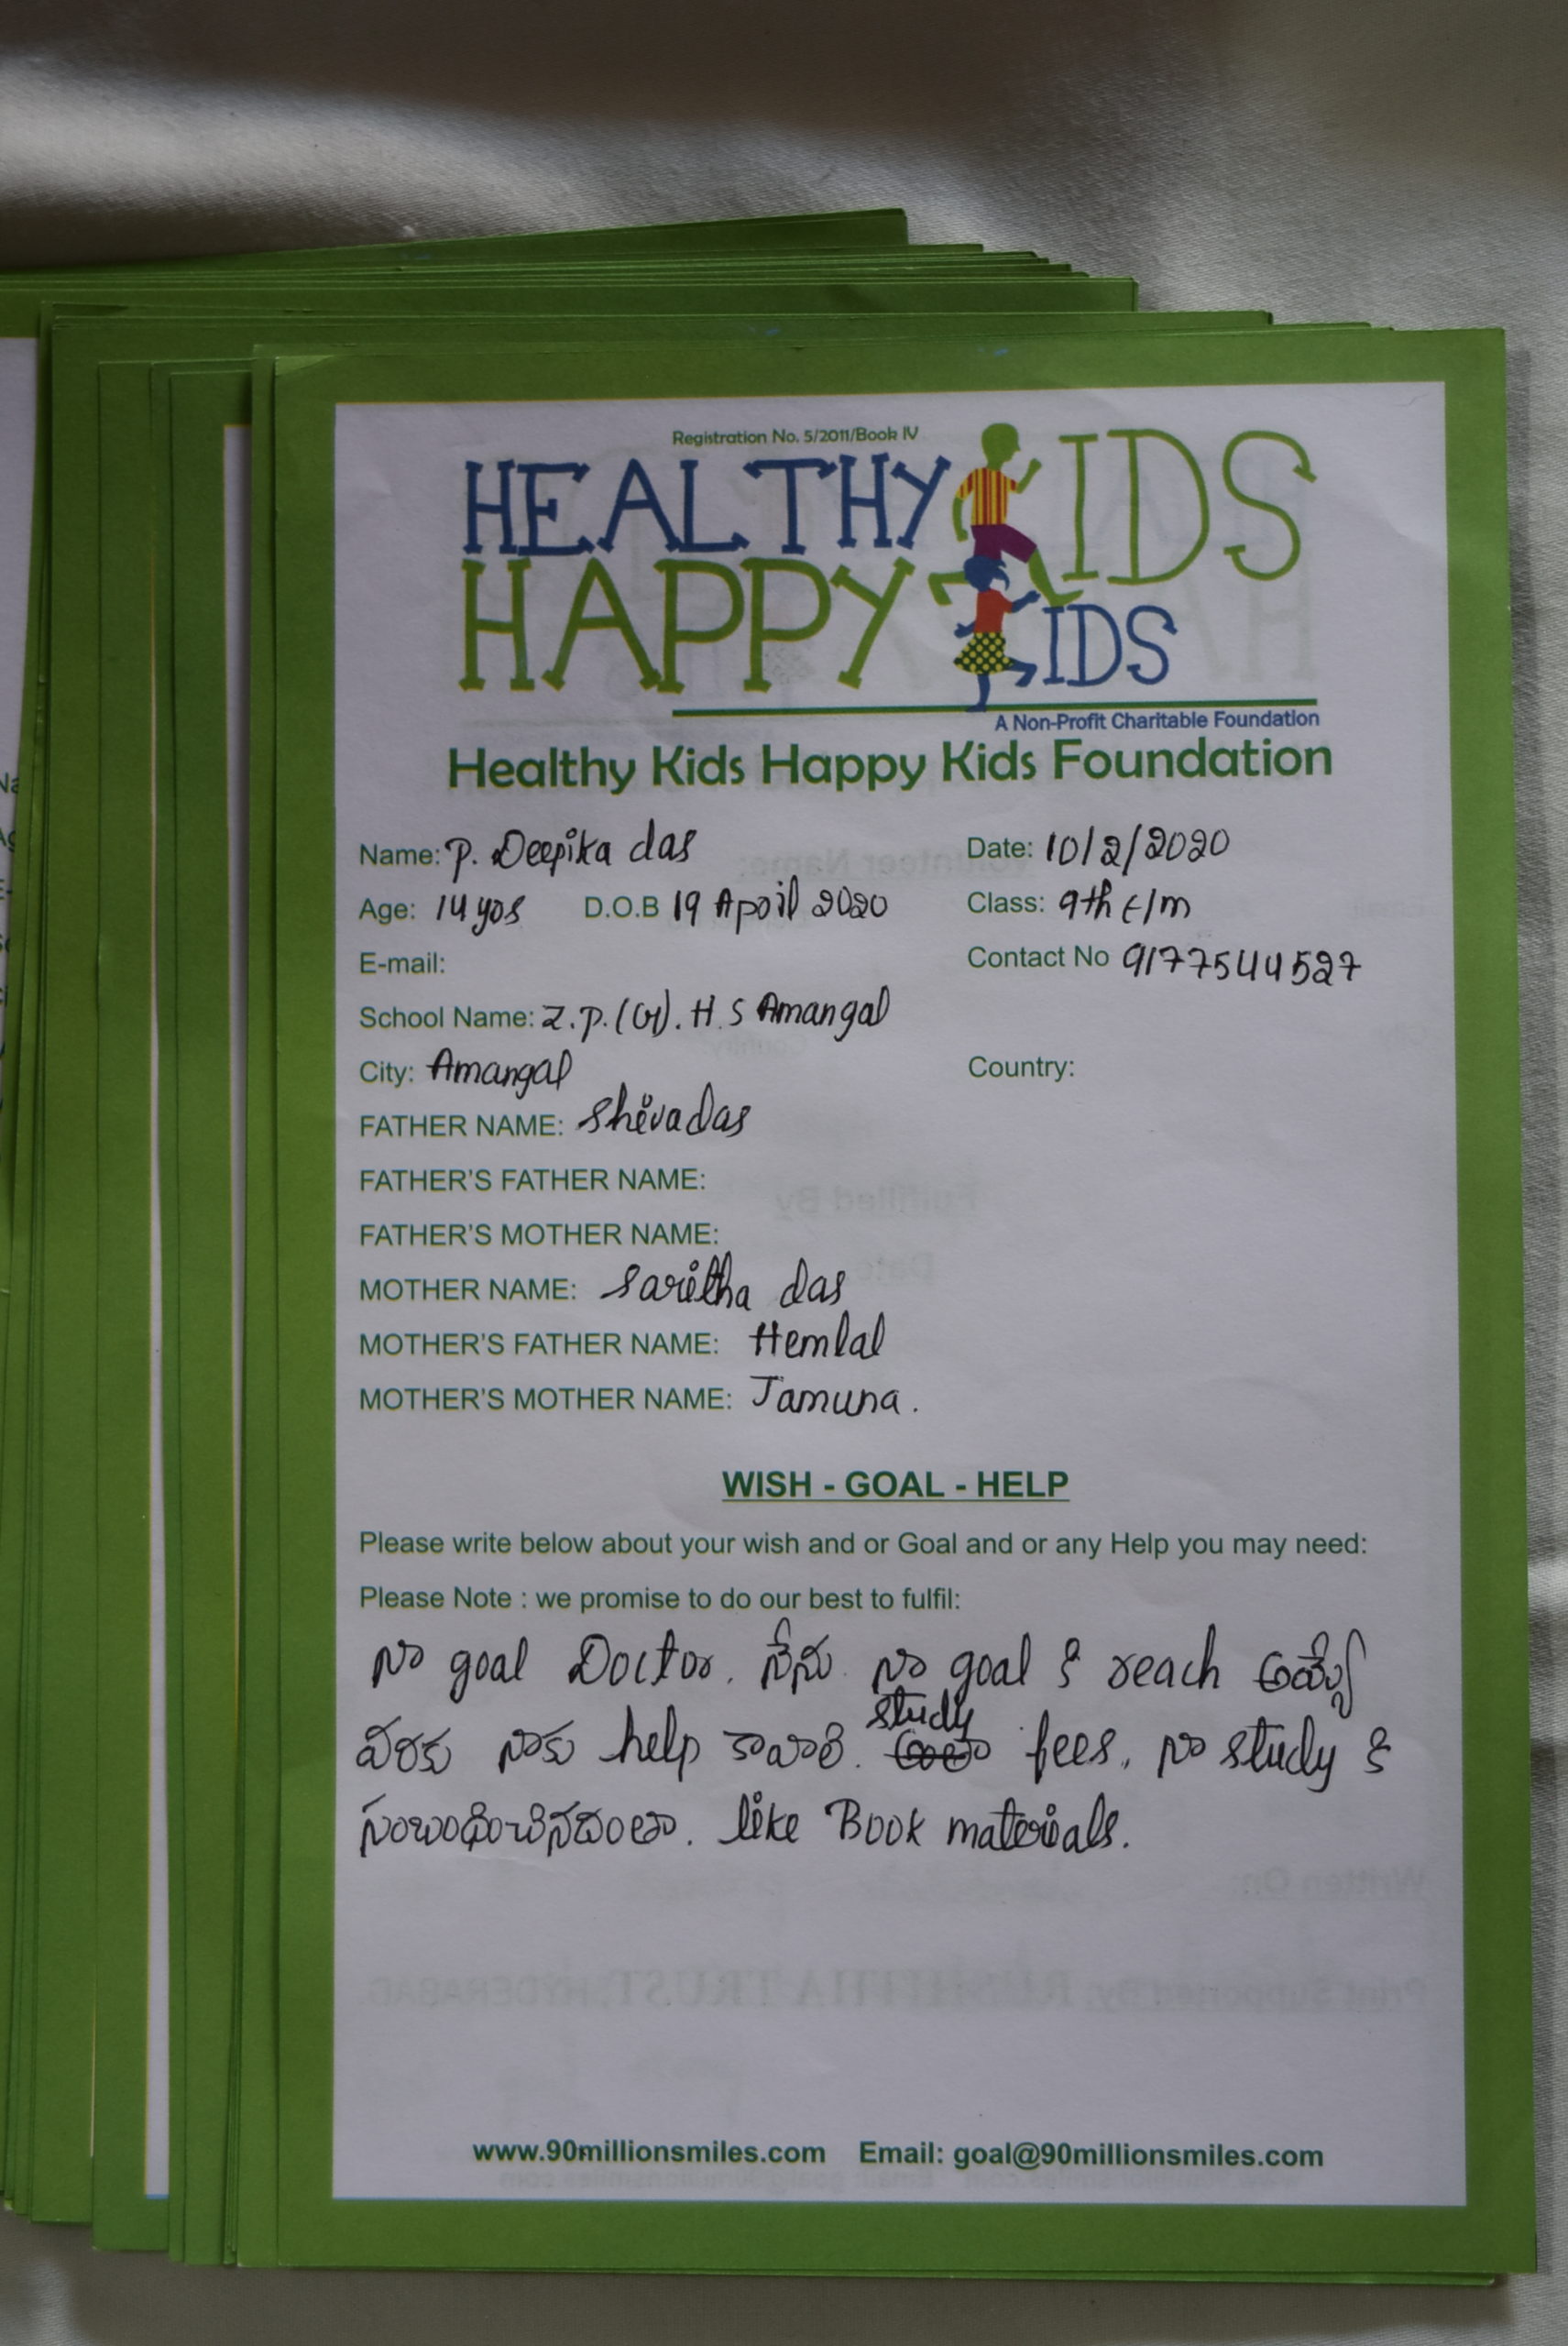 Registration No. 5/2011/Book IV
HEALTHY KIDS
HAPPY KIDS
A Non-Profit Charitable Foundation
Healthy Kids Happy Kids Foundation
Name: P. Deepika das Date: 10/2/2020
Age: 14 yrs D.O.B 19 April 2020 Class: 9th E/m
E-mail: Contact No 9177544527
School Name: Z.P.(G).H.S Amangal
City: Amangal Country:
FATHER NAME: Shivadas
FATHER'S FATHER NAME:
FATHER'S MOTHER NAME:
MOTHER NAME: Saritha das
MOTHER'S FATHER NAME: Hemlal
MOTHER'S MOTHER NAME: Jamuna.
WISH - GOAL - HELP
Please write below about your wish and or Goal and or any Help you may need:
Please Note : we promise to do our best to fulfil:
నా goal Doctor. నేను నా goal కి reach అయ్యే
వరకు నాకు help కావాలి. study fees, నా study కి
సంబంధించినదంతా. like Book materials.
www.90millionsmiles.com Email: goal@90millionsmiles.com